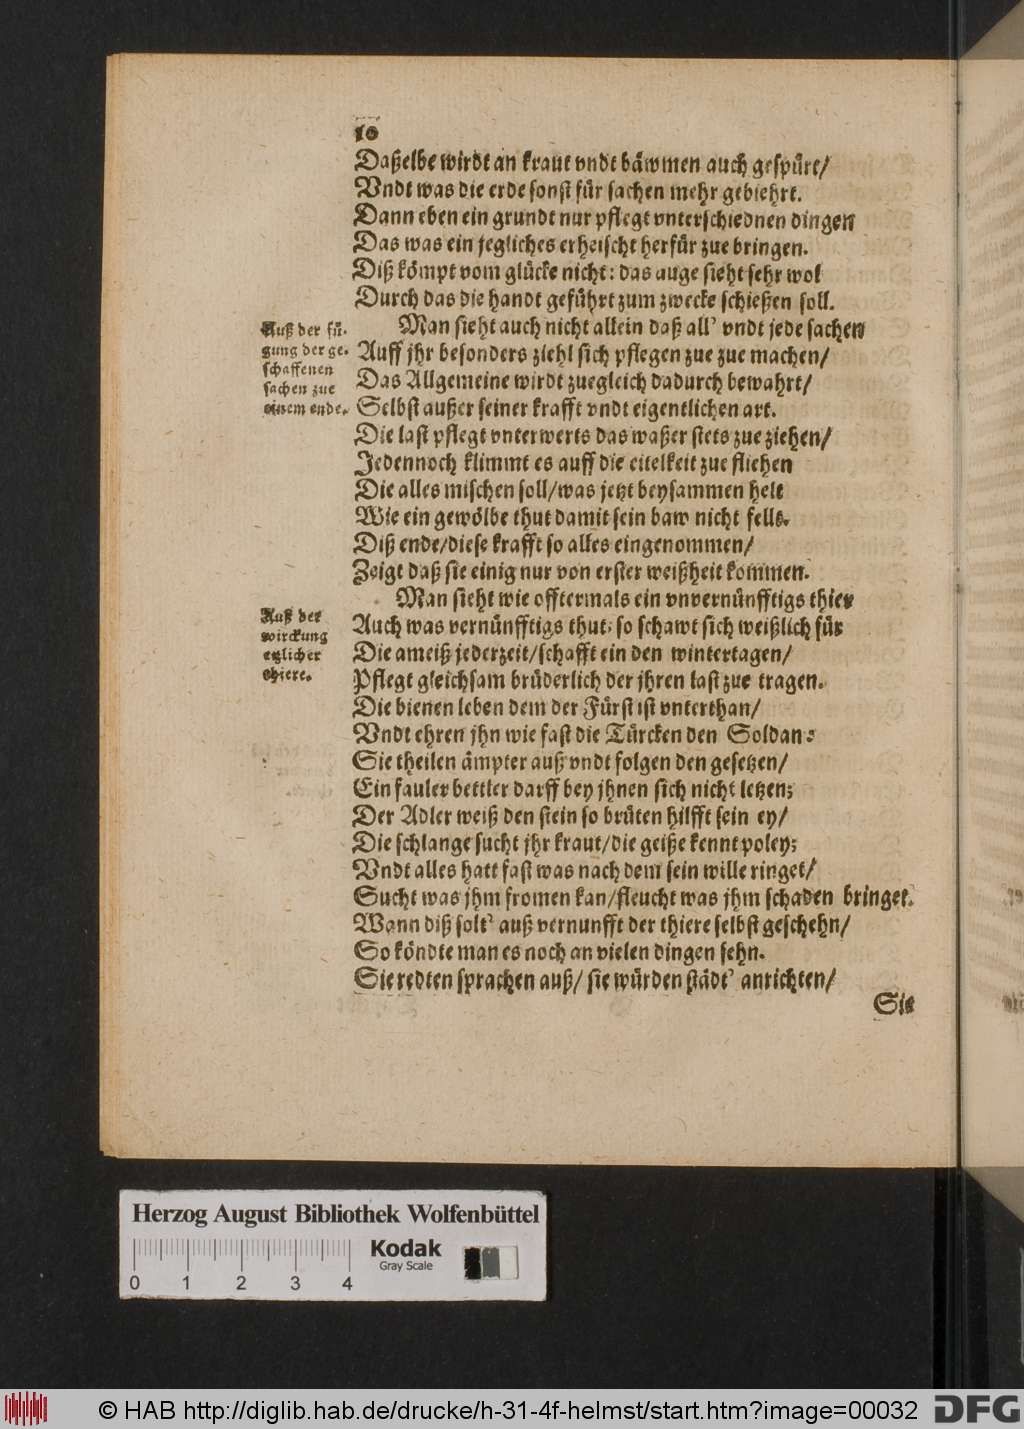 10
Daßelbe wirdt an kraut vndt bäwmen auch gespürt/
Vndt was die erde sonst für sachen mehr gebiehrt.
Dann eben ein grundt nur pflegt vnterschiednen dingen
Das was ein jegliches erheischt herfür zue bringen.
Diß kömpt vom glücke nicht: das auge sieht sehr wol
Durch das die handt geführt zum zwecke schießen soll.
Auß der fü-
gung der ge-
schaffenen
sachen zue
einem ende.
Man sieht auch nicht allein daß all' vndt jede sachen
Auff jhr besonders ziehl sich pflegen zue zue machen/
Das Allgemeine wirdt zuegleich dadurch bewahrt/
Selbst außer seiner krafft vndt eigentlichen art.
Die last pflegt vnterwerts das waßer stets zue ziehen/
Jedennoch klimmt es auff die eitelkeit zue fliehen
Die alles mischen soll/was jetzt beysammen helt
Wie ein gewölbe thut damit sein baw nicht fellt.
Diß ende/diese krafft so alles eingenommen/
Zeigt daß sie einig nur von erster weißheit kommen.
Auß der
wirckung
etzlicher
thiere.
Man sieht wie offtermals ein vnvernünfftigs thier
Auch was vernünfftigs thut; so schawt sich weißlich für
Die ameiß jederzeit/schafft ein den wintertagen/
Pflegt gleichsam brüderlich der jhren last zue tragen.
Die bienen leben dem der Fürst ist vnterthan/
Vndt ehren jhn wie fast die Türcken den Soldan:
Sie theilen ämpter auß vndt folgen den gesetzen/
Ein fauler bettler darff bey jhnen sich nicht letzen;
Der Adler weiß den stein so brüten hilfft sein ey/
Die schlange sucht jhr kraut/die geiße kennt poley;
Vndt alles hatt fast was nach dem sein wille ringet/
Sucht was jhm fromen kan/fleucht was jhm schaden bringet.
Wann diß solt' auß vernunfft der thiere selbst geschehn/
So köndte man es noch an vielen dingen sehn.
Sie redten sprachen auß/ sie würden städt' anrichten/
Sie
Herzog August Bibliothek Wolfenbüttel
Kodak
Gray Scale
0 1 2 3 4
© HAB http://diglib.hab.de/drucke/h-31-4f-helmst/start.htm?image=00032
DFG